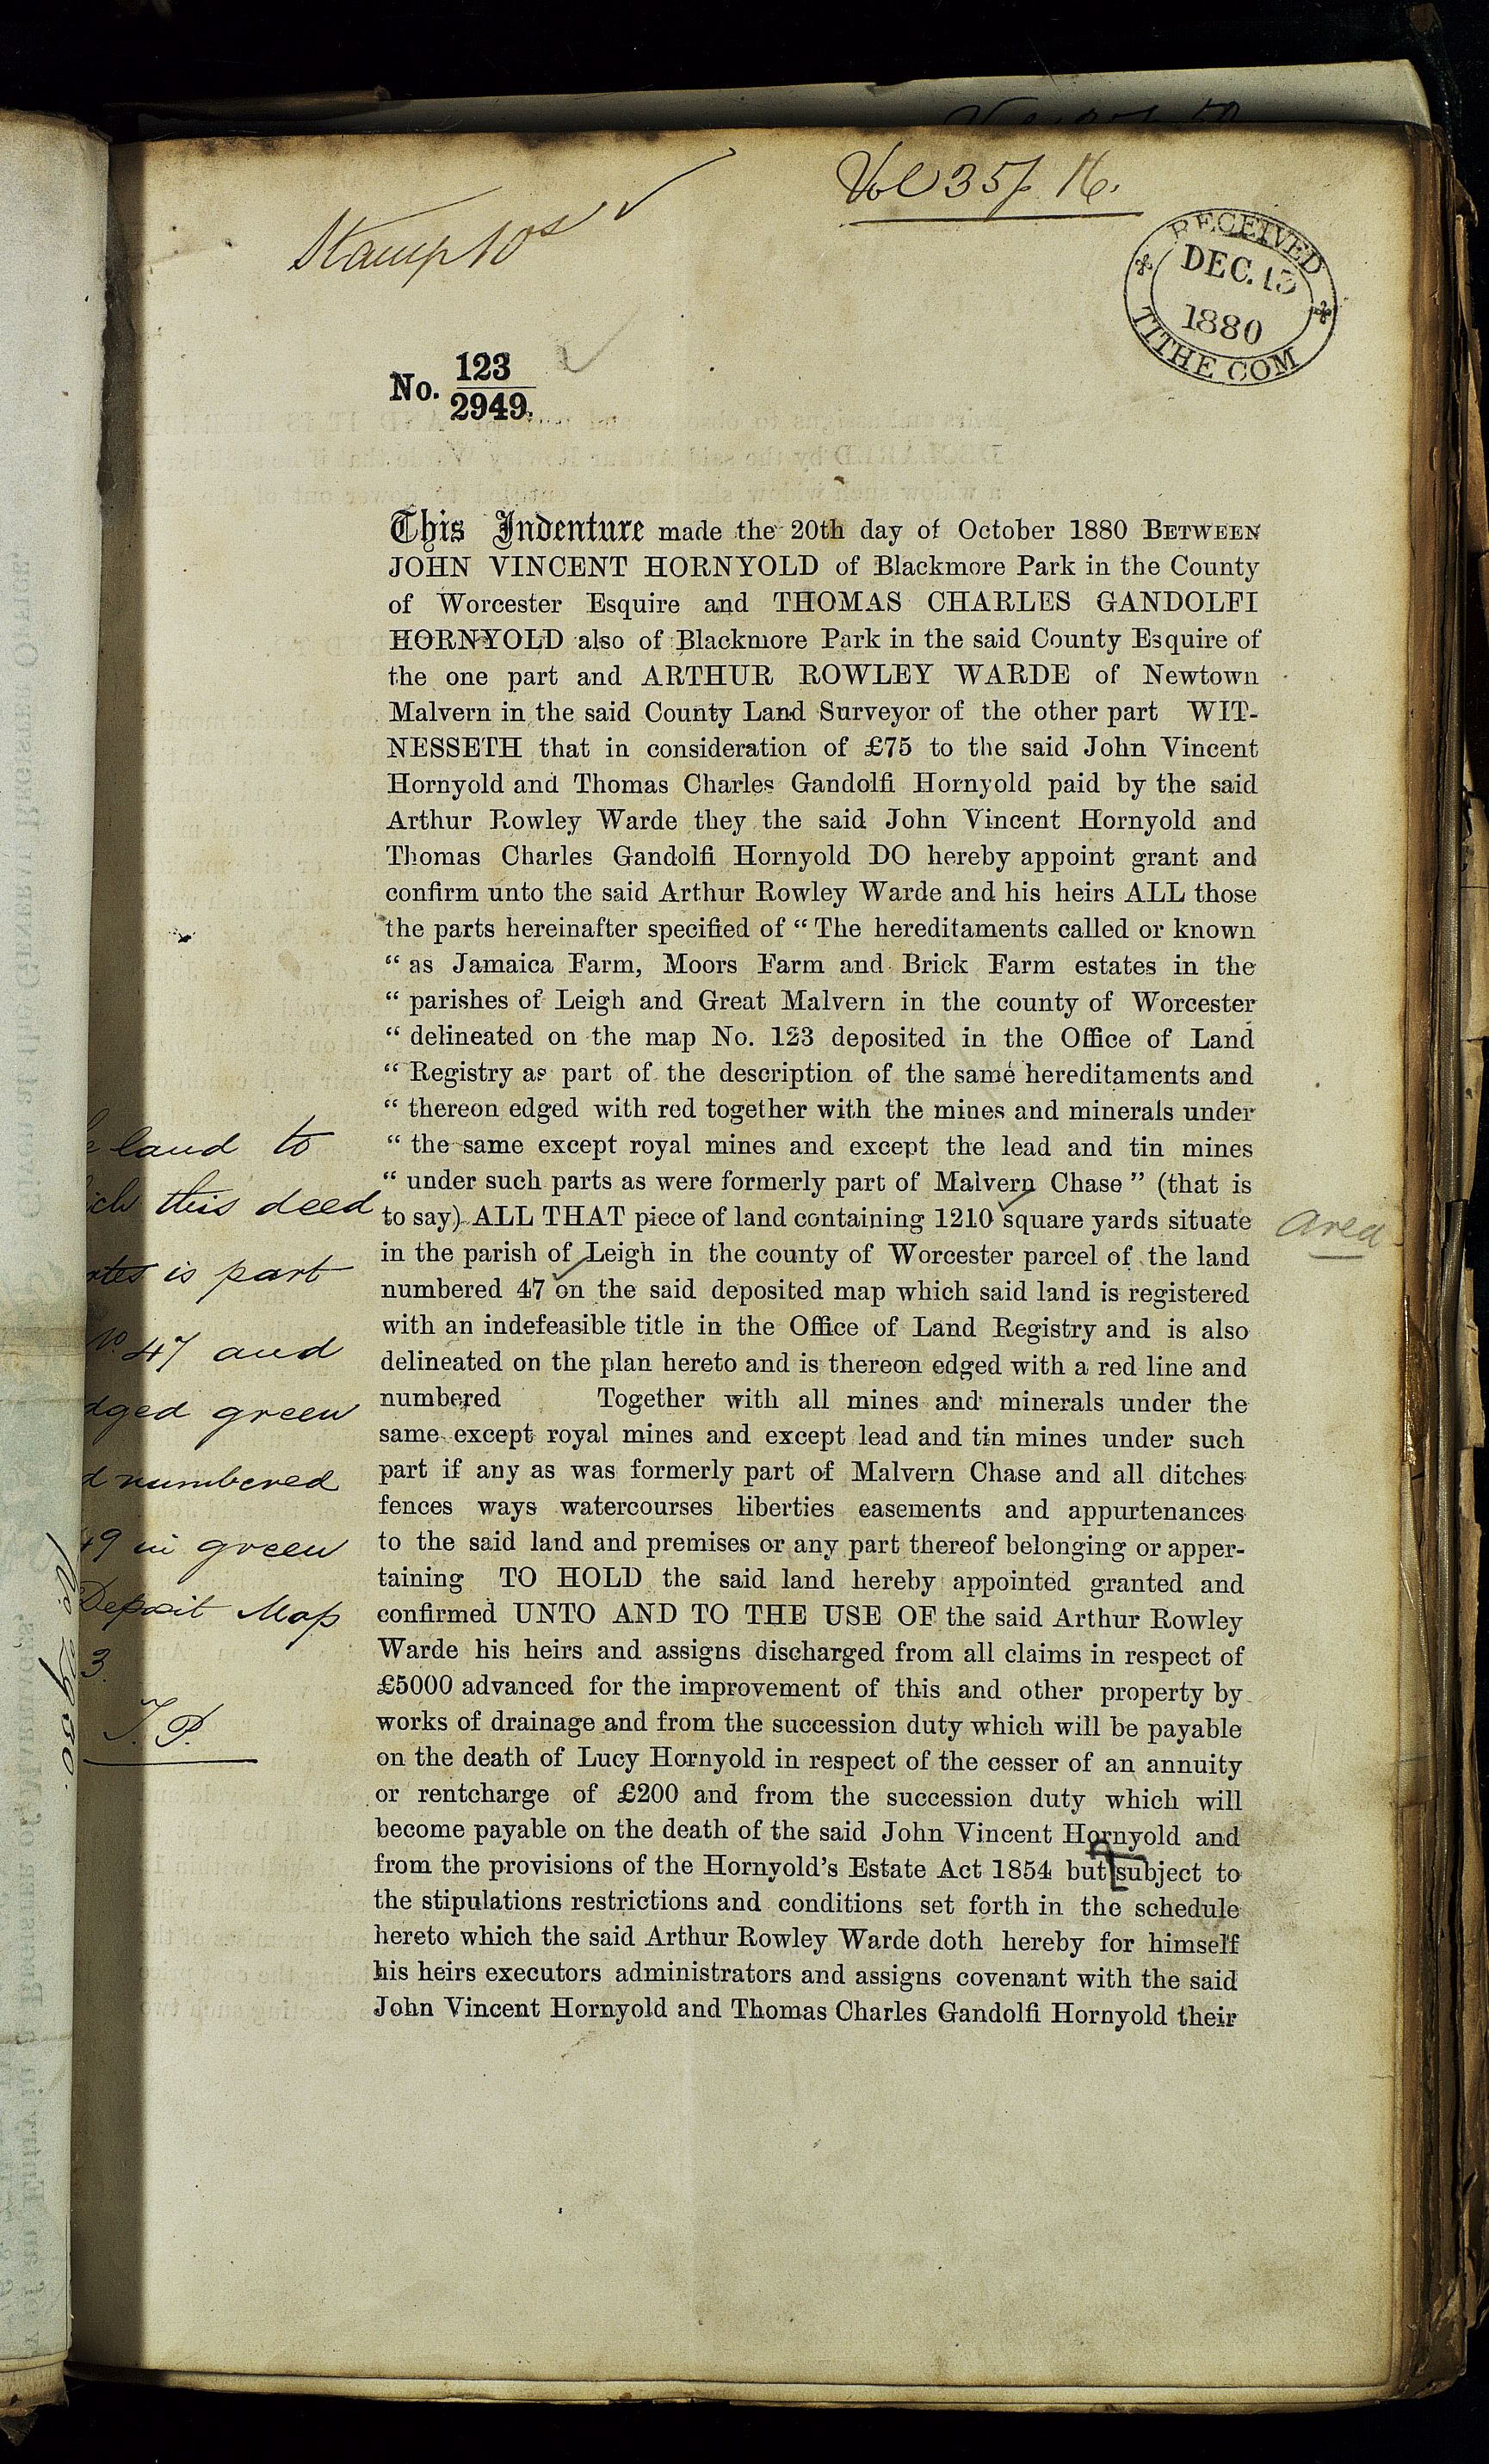 Vol 35 f. 16.
Stamp 10s
RECEIVED
DEC. 13
1880
TITHE COM
No. 123
2949.
This Indenture made the 20th day of October 1880 BETWEEN
JOHN VINCENT HORNYOLD of Blackmore Park in the County
of Worcester Esquire and THOMAS CHARLES GANDOLFI
HORNYOLD also of Blackmore Park in the said County Esquire of
the one part and ARTHUR ROWLEY WARDE of Newtown
Malvern in the said County Land Surveyor of the other part WIT-
NESSETH that in consideration of £75 to the said John Vincent
Hornyold and Thomas Charles Gandolfi Hornyold paid by the said
Arthur Rowley Warde they the said John Vincent Hornyold and
Thomas Charles Gandolfi Hornyold DO hereby appoint grant and
confirm unto the said Arthur Rowley Warde and his heirs ALL those
the parts hereinafter specified of “ The hereditaments called or known
“ as Jamaica Farm, Moors Farm and Brick Farm estates in the
“ parishes of Leigh and Great Malvern in the county of Worcester
“ delineated on the map No. 123 deposited in the Office of Land
“ Registry as part of the description of the same hereditaments and
“ thereon edged with red together with the mines and minerals under
“ the same except royal mines and except the lead and tin mines
“ under such parts as were formerly part of Malvern Chase ” (that is
to say) ALL THAT piece of land containing 1210 square yards situate
in the parish of Leigh in the county of Worcester parcel of the land
numbered 47 on the said deposited map which said land is registered
with an indefeasible title in the Office of Land Registry and is also
delineated on the plan hereto and is thereon edged with a red line and
numbered Together with all mines and minerals under the
same except royal mines and except lead and tin mines under such
part if any as was formerly part of Malvern Chase and all ditches
fences ways watercourses liberties easements and appurtenances
to the said land and premises or any part thereof belonging or apper-
taining TO HOLD the said land hereby appointed granted and
confirmed UNTO AND TO THE USE OF the said Arthur Rowley
Warde his heirs and assigns discharged from all claims in respect of
£5000 advanced for the improvement of this and other property by
works of drainage and from the succession duty which will be payable
on the death of Lucy Hornyold in respect of the cesser of an annuity
or rentcharge of £200 and from the succession duty which will
become payable on the death of the said John Vincent Hornyold and
from the provisions of the Hornyold's Estate Act 1854 but subject to
the stipulations restrictions and conditions set forth in the schedule
hereto which the said Arthur Rowley Warde doth hereby for himself
his heirs executors administrators and assigns covenant with the said
John Vincent Hornyold and Thomas Charles Gandolfi Hornyold their
area
land to
this deed
is part
No 47 and
green
numbered
49 in green
Deposit Map
3.
T. P.